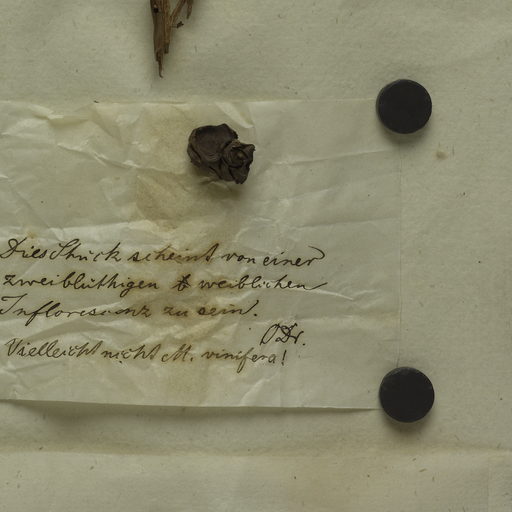 Dies Stück scheint von einer
zweiblüthigen weiblichen
Inflorescenz zu sein.
ODr.
Vielleicht nicht M. vinifera!